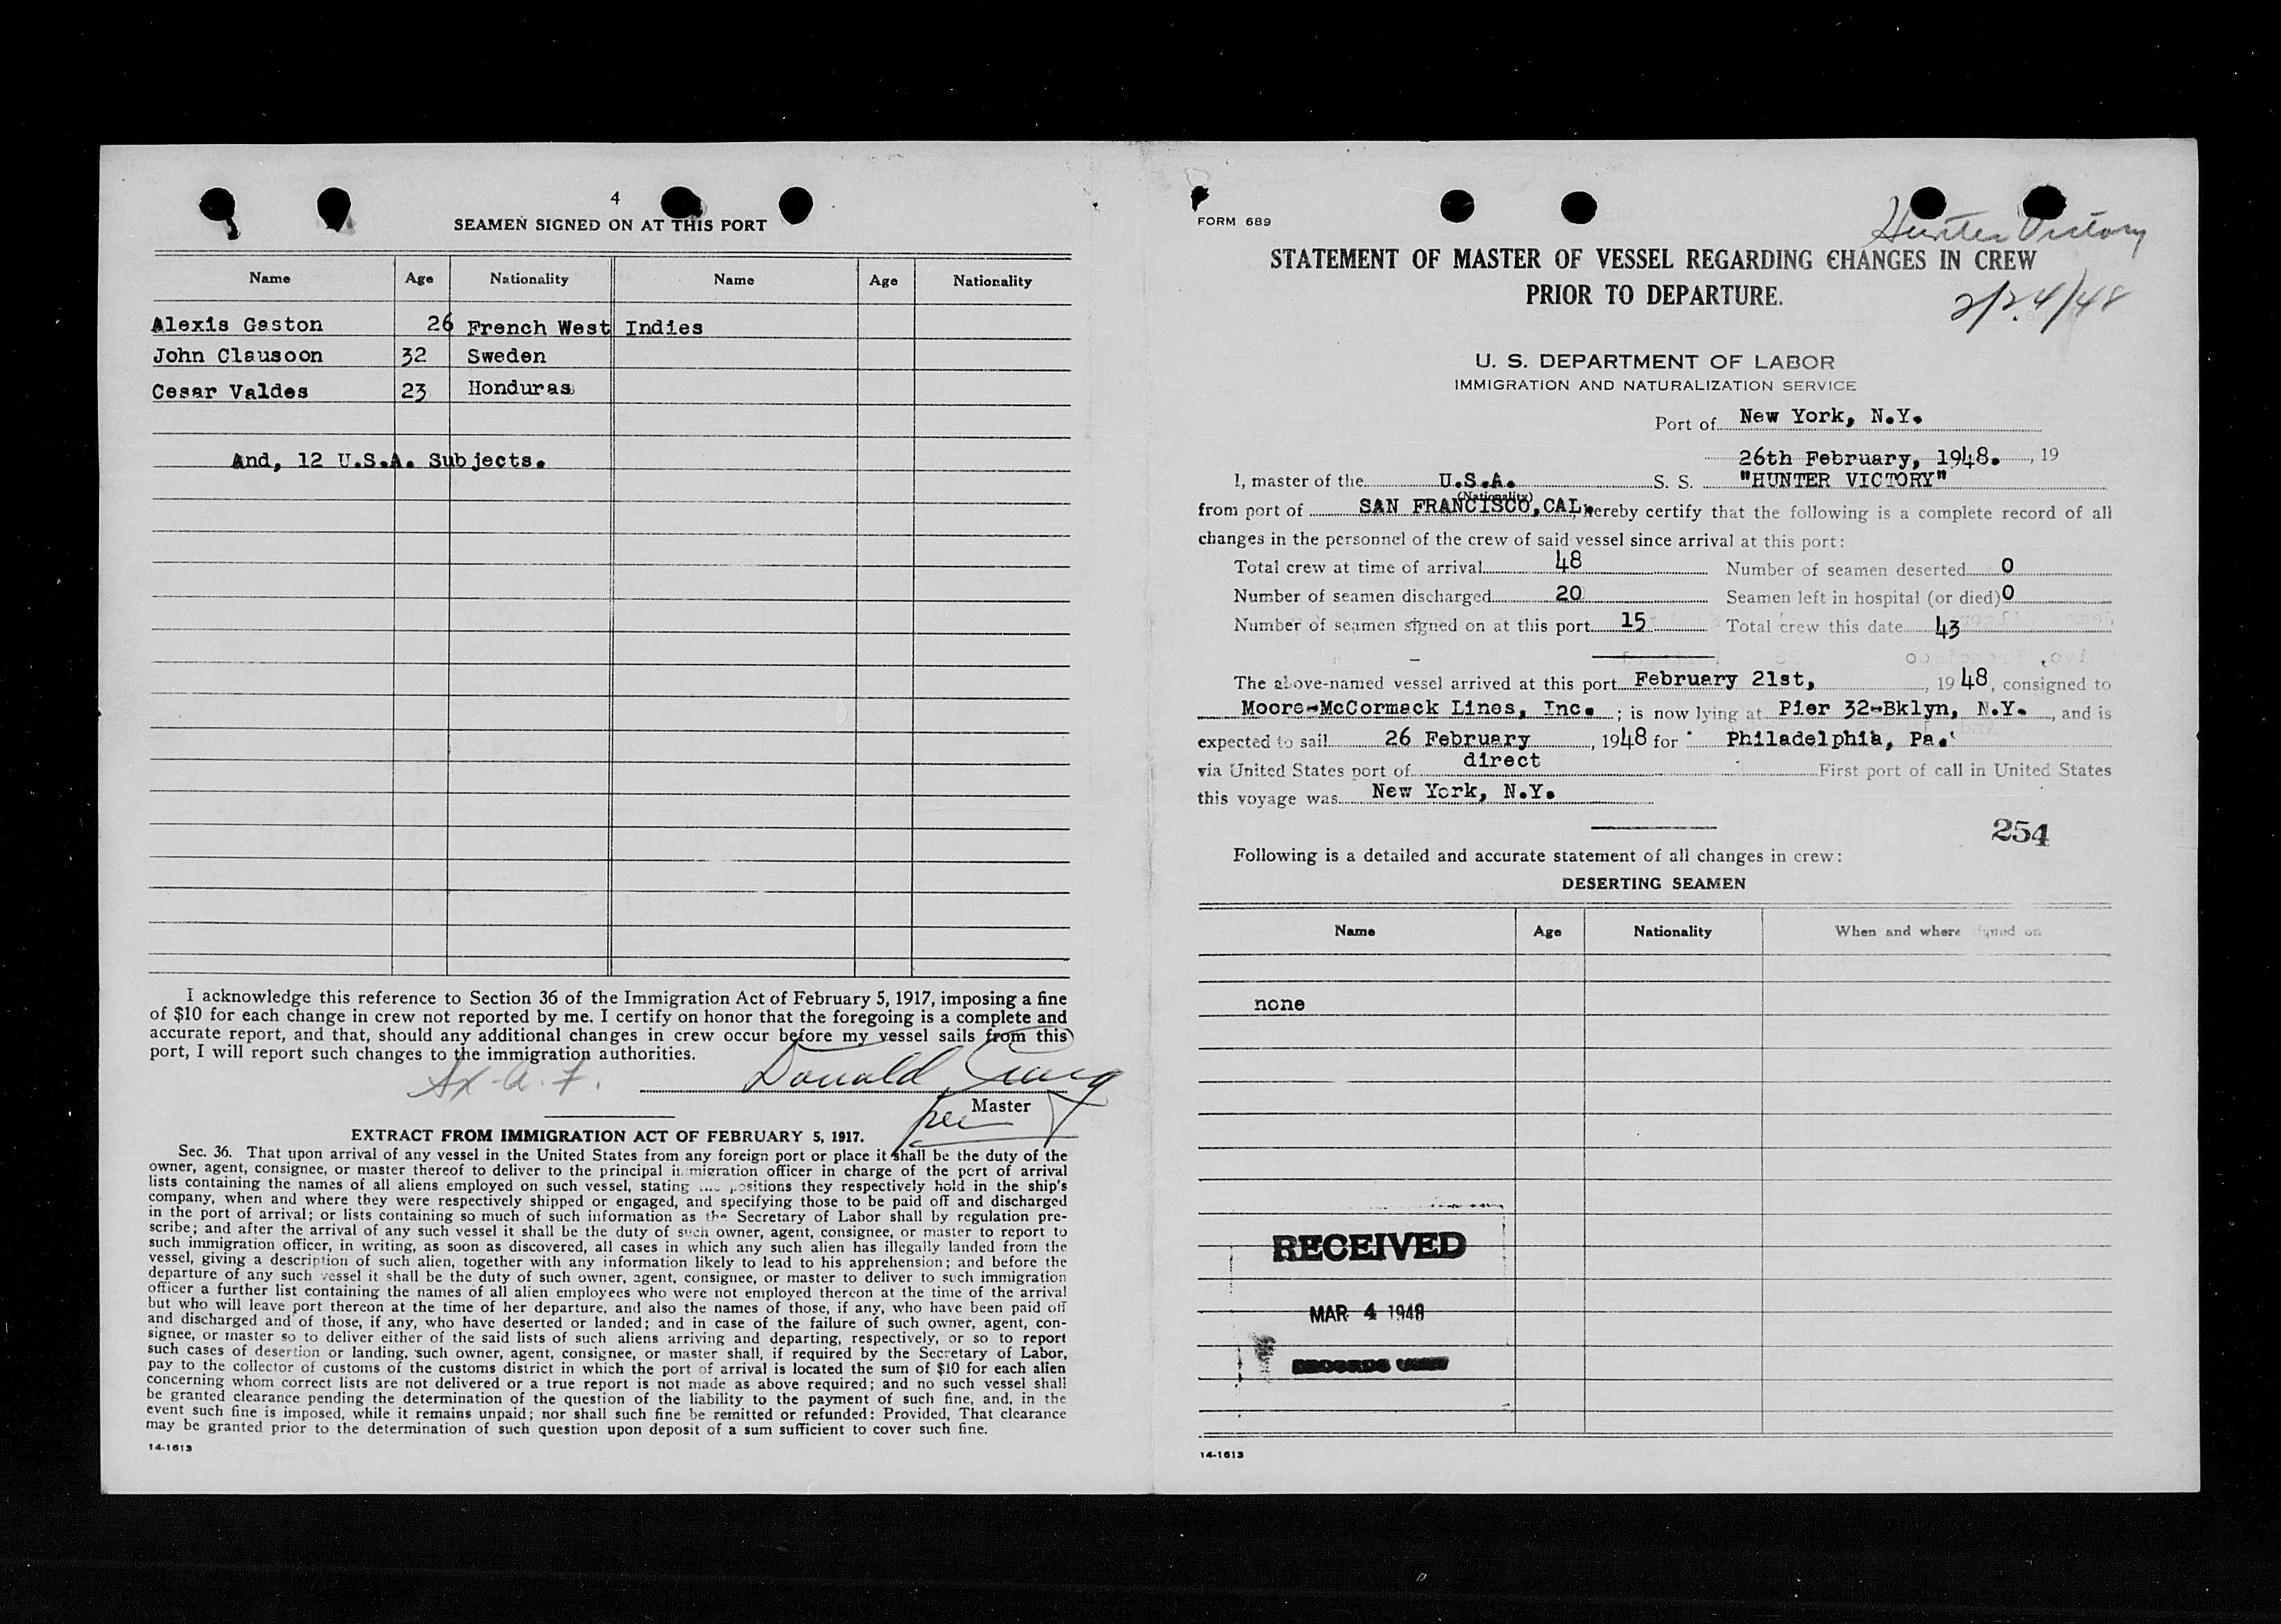 4
SEAMEN SIGNED ON AT THIS PORT
Name Age Nationality Name Age Nationality
Alexis Gaston 26 French West Indies
John Clausoon 32 Sweden
Cesar Valdes 23 Honduras
And, 12 U.S.A. Subjects.
I acknowledge this reference to Section 36 of the Immigration Act of February 5, 1917, imposing a fine
of $10 for each change in crew not reported by me. I certify on honor that the foregoing is a complete and
accurate report, and that, should any additional changes in crew occur before my vessel sails from this
port, I will report such changes to the immigration authorities.
Donald
Master
EXTRACT FROM IMMIGRATION ACT OF FEBRUARY 5, 1917.
Sec. 36. That upon arrival of any vessel in the United States from any foreign port or place it shall be the duty of the
owner, agent, consignee, or master thereof to deliver to the principal immigration officer in charge of the port of arrival
lists containing the names of all aliens employed on such vessel, stating the positions they respectively hold in the ship's
company, when and where they were respectively shipped or engaged, and specifying those to be paid off and discharged
in the port of arrival; or lists containing so much of such information as the Secretary of Labor shall by regulation pre-
scribe; and after the arrival of any such vessel it shall be the duty of such owner, agent, consignee, or master to report to
such immigration officer, in writing, as soon as discovered, all cases in which any such alien has illegally landed from the
vessel, giving a description of such alien, together with any information likely to lead to his apprehension; and before the
departure of any such vessel it shall be the duty of such owner, agent, consignee, or master to deliver to such immigration
officer a further list containing the names of all alien employees who were not employed thereon at the time of the arrival
but who will leave port thereon at the time of her departure, and also the names of those, if any, who have been paid off
and discharged and of those, if any, who have deserted or landed; and in case of the failure of such owner, agent, con-
signee, or master so to deliver either of the said lists of such aliens arriving and departing, respectively, or so to report
such cases of desertion or landing, such owner, agent, consignee, or master shall, if required by the Secretary of Labor,
pay to the collector of customs of the customs district in which the port of arrival is located the sum of $10 for each alien
concerning whom correct lists are not delivered or a true report is not made as above required; and no such vessel shall
be granted clearance pending the determination of the question of the liability to the payment of such fine, and, in the
event such fine is imposed, while it remains unpaid; nor shall such fine be remitted or refunded: Provided, That clearance
may be granted prior to the determination of such question upon deposit of a sum sufficient to cover such fine.
14-1613
FORM 689
Hunter Victory
STATEMENT OF MASTER OF VESSEL REGARDING CHANGES IN CREW
PRIOR TO DEPARTURE.
2/24/48
U. S. DEPARTMENT OF LABOR
IMMIGRATION AND NATURALIZATION SERVICE
Port of New York, N.Y.
26th February, 1948. , 19
I, master of the U.S.A. S. S. "HUNTER VICTORY"
(Nationality)
from port of SAN FRANCISCO, CAL. hereby certify that the following is a complete record of all
changes in the personnel of the crew of said vessel since arrival at this port:
Total crew at time of arrival 48 Number of seamen deserted 0
Number of seamen discharged 20 Seamen left in hospital (or died) 0
Number of seamen signed on at this port 15 Total crew this date 43
The above-named vessel arrived at this port February 21st, , 1948, consigned to
Moore-McCormack Lines, Inc. ; is now lying at Pier 32-Bklyn, N.Y. , and is
expected to sail 26 February , 1948 for Philadelphia, Pa.
via United States port of direct First port of call in United States
this voyage was New York, N.Y.
254
Following is a detailed and accurate statement of all changes in crew:
DESERTING SEAMEN
Name Age Nationality When and where signed on
none
RECEIVED
MAR 4 1948
14-1613